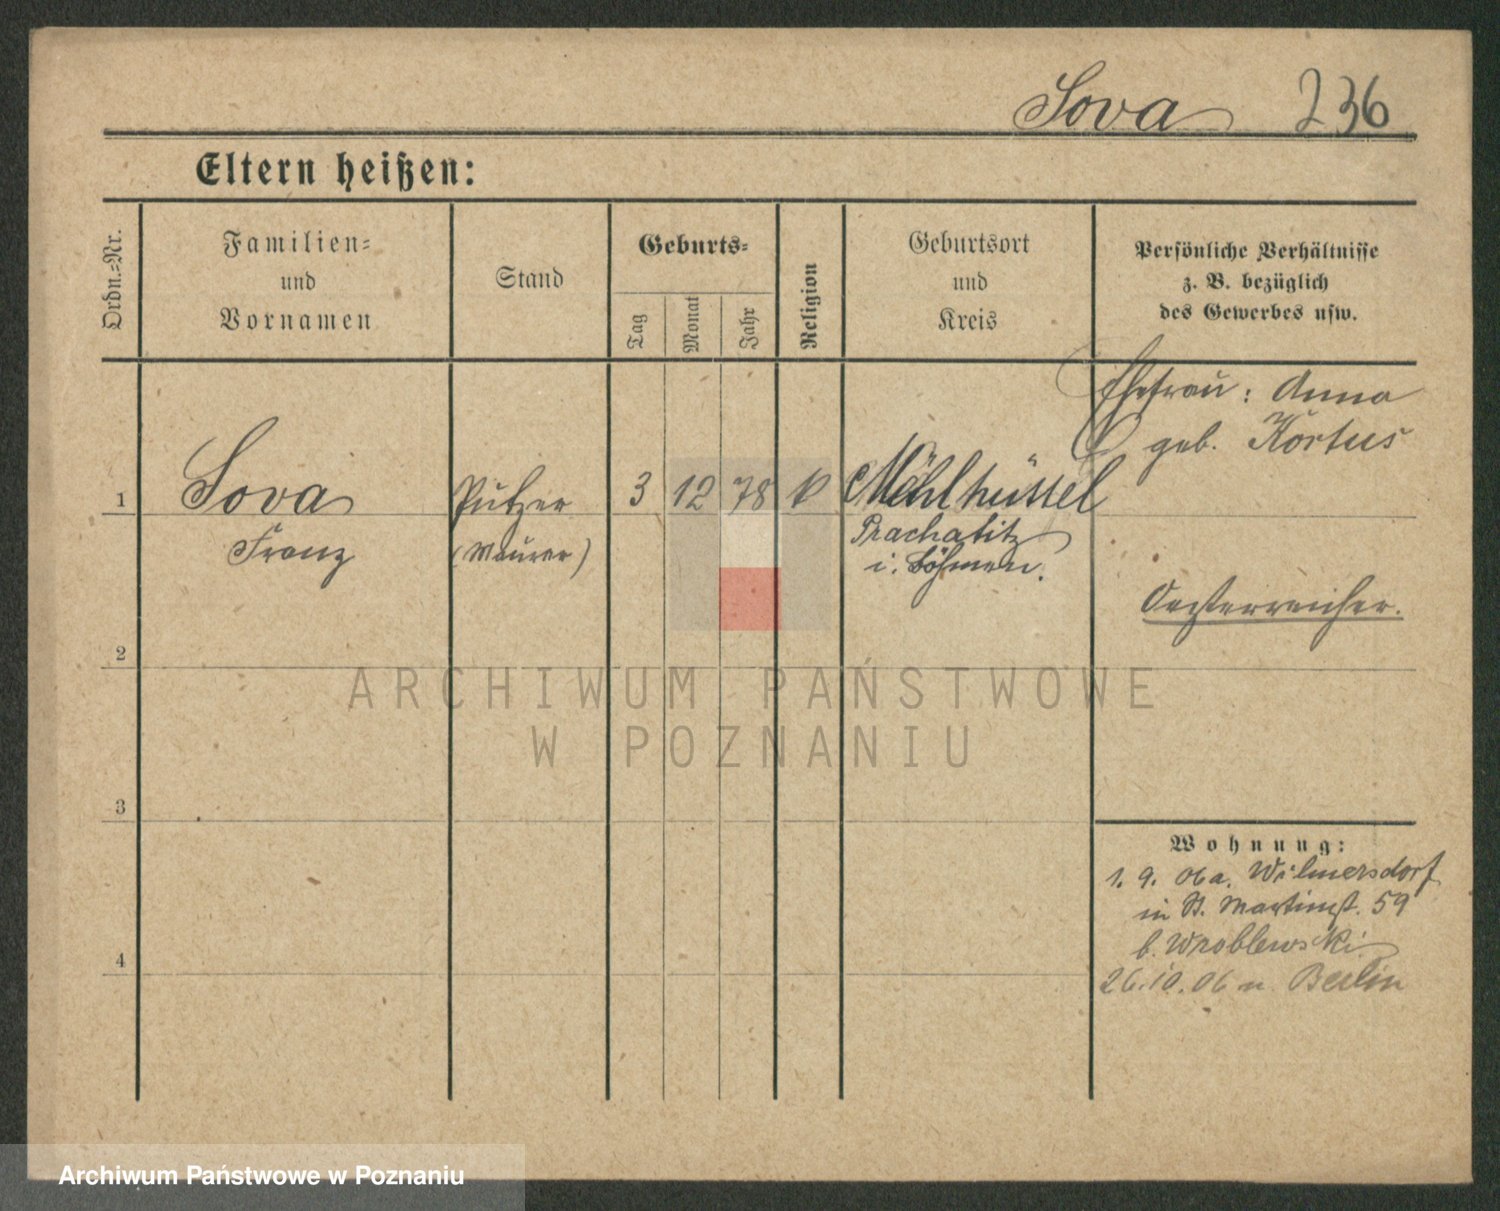 Sova 236
Eltern heißen:
Ordn.=Nr.
Familien=
und
Vornamen
Stand
Geburts=
Tag
Monat
Jahr
Religion
Geburtsort
und
Kreis
Persönliche Verhältnisse
z. B. bezüglich
des Gewerbes usw.
Ehefrau: Anna
geb. Kortus
1 Sova Putzer 3 12 78 k
Franz (Maurer) Prachatitz
i. Böhmen.
Oesterreicher.
2
ARCHIWUM PAŃSTWOWE
W POZNANIU
3
Wohnung:
1. 9. 06 a. Wilmersdorf
in St. Martinst. 59
b. Wroblewski
4
26.10.06 n. Berlin
Archiwum Państwowe w Poznaniu